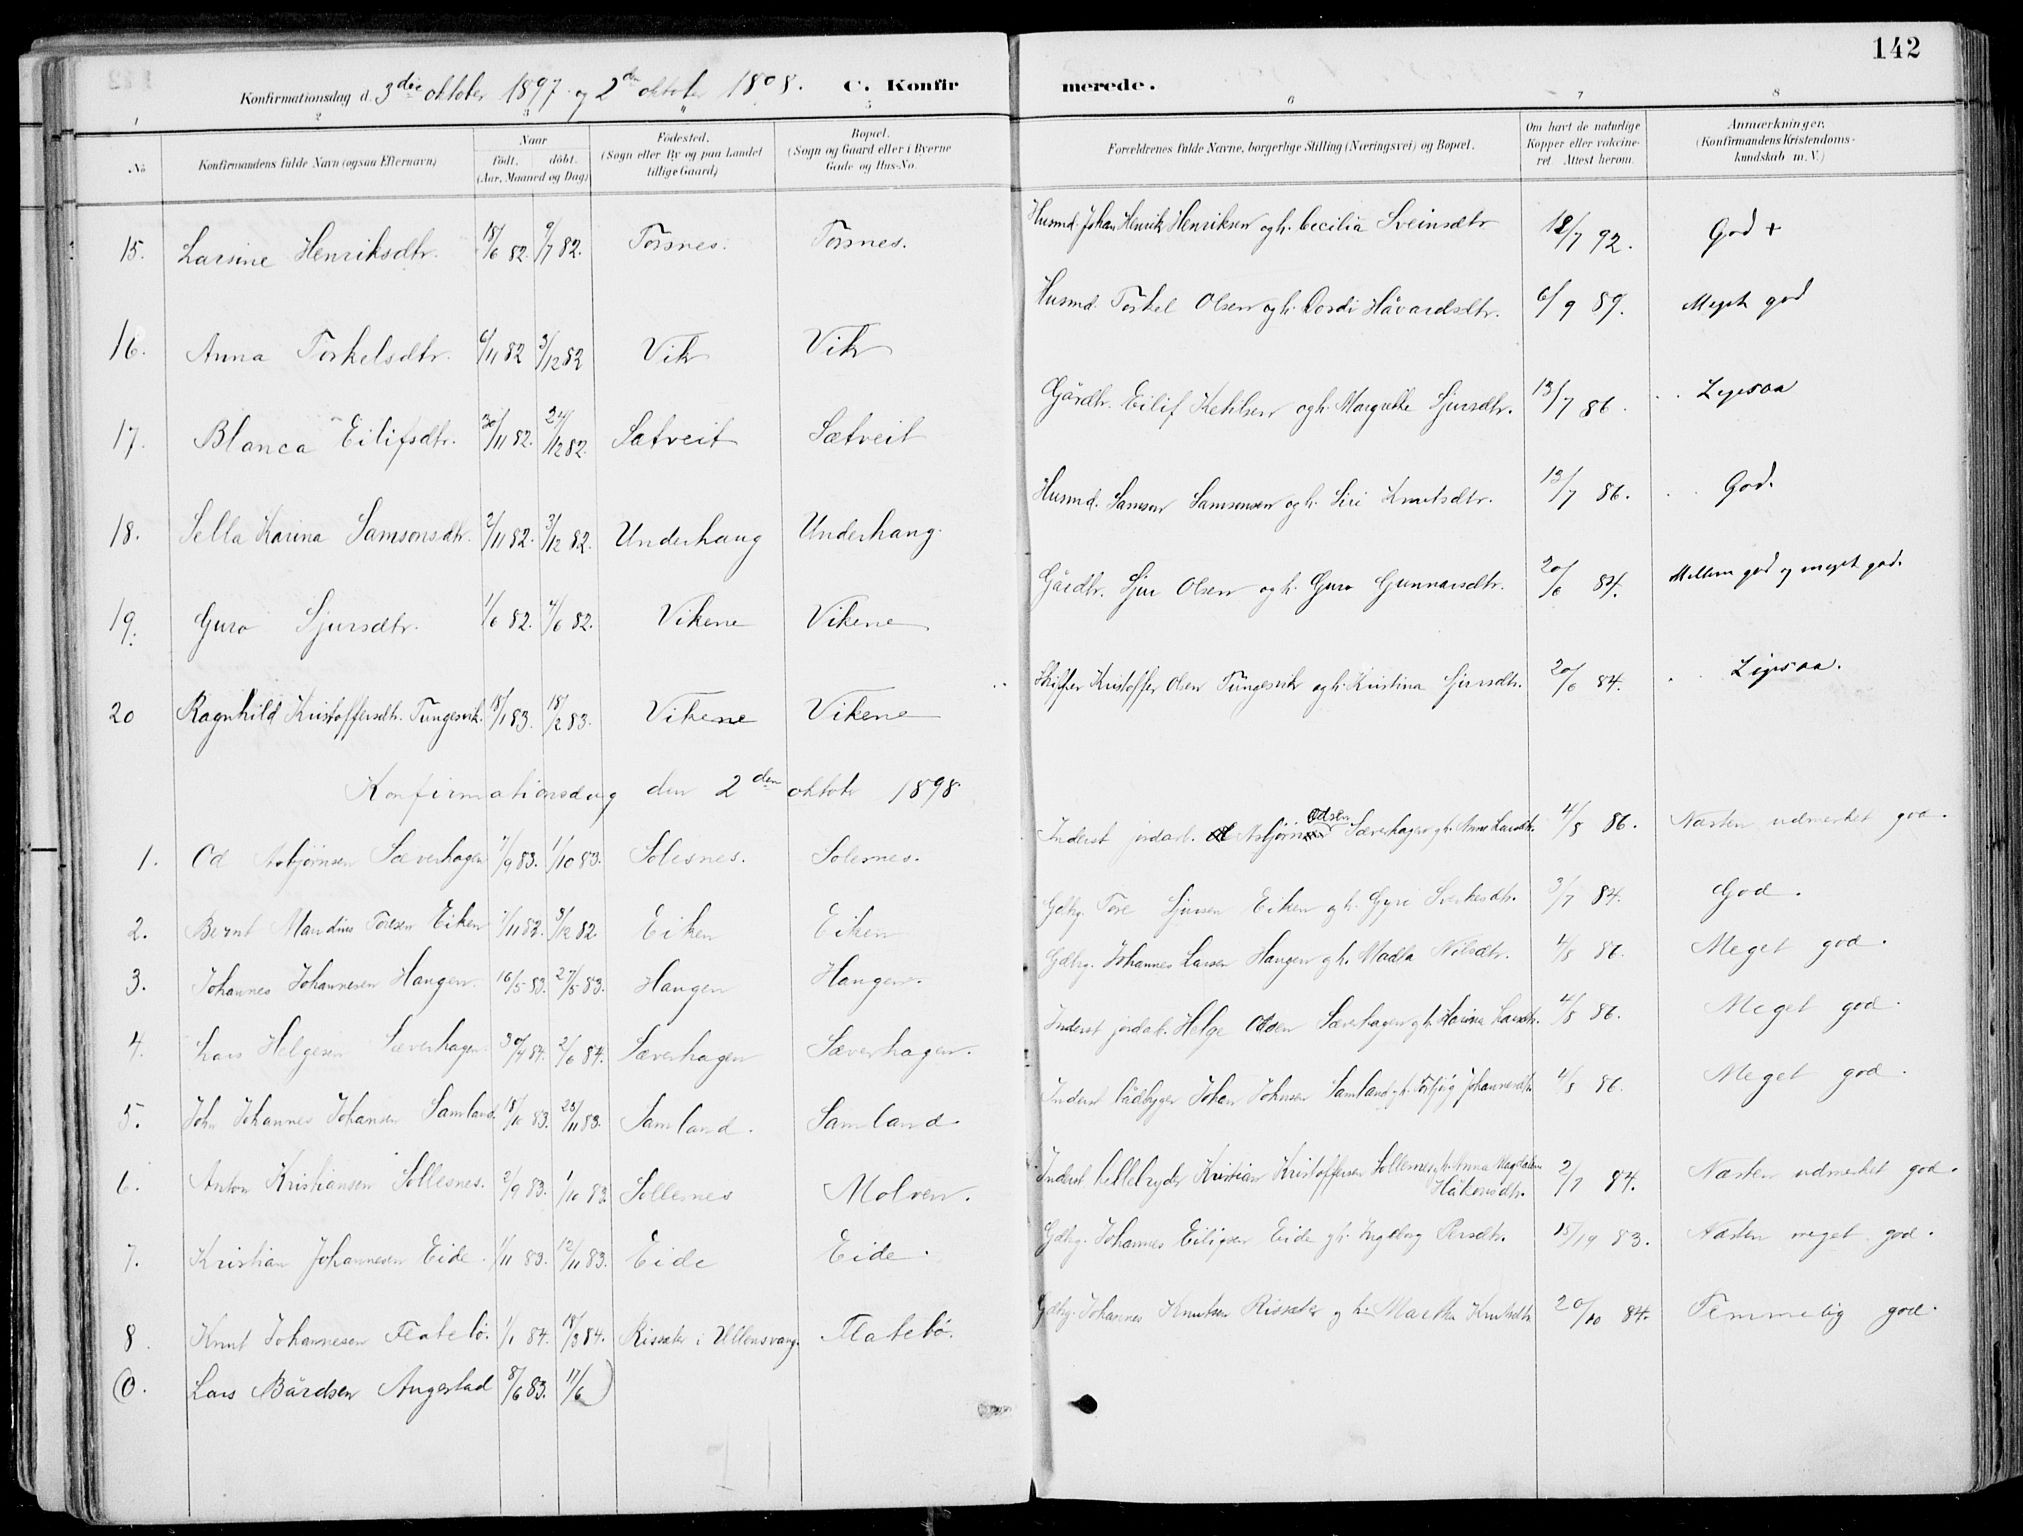 142
Konfirmationsdag d. 3die oktober 1897 og 2den oktober 1898. C. Konfirmerede.
1 2 3 4 5 6 7 8
No Konfirmandens fulde Navn (ogsaa Efternavn) Naar født, døbt. (Aar, Maaned og Dag) Fødested. (Sogn eller By og paa Landet tillige Gaard) Bopæl. (Sogn og Gaard eller i Byerne Gade og Hus-No. Forældrenes fulde Navne, borgerlige Stilling (Næringsvei) og Bopæl. Om havt de naturlige Kopper eller vakcineret. Attest herom. Anmærkninger. (Konfirmandens Kristendomskundskab m. V.)
15. Larsine Henriksdtr. 18/6 82. 9/7 82. Torsnes. Torsnes. Husmd. Johan Henrik Henriksen og h. Cecilia Sveinsdtr 18/7 92. God +
16. Anna Torkelsdtr. 6/11 82 3/12 82 Vik Vik Husmd. Torkel Olsen og h. Dordi Håvardsdtr. 6/9 89. Meget god
17. Blanca Eilifsdtr. 30/11 82. 24/12 82. Sætveit Sætveit Gårdbr. Eilif Ketilsen og h. Margrethe Sjursdtr. 13/7 86. Ligesaa
18. Sella Karina Samsonsdtr. 2/11 82. 3/12 82. Underhaug Underhaug. Husmd. Samson Samsonsen og h. Siri Knutsdtr. 13/7 86. God.
19. Guro Sjursdtr. 1/6 82. 4/6 82. Vikene Vikene Gårdbr. Sjur Olsen og h. Guro Gunnarsdtr. 20/6 84. Mellem god og meget god.
20 Ragnhild Kristoffersdtr. Tungesvik. 18/1 83. 18/2 83. Vikene Vikene Skipper Kristoffer Olsen Tungesvik og h. Kristina Sjursdtr. 20/6 84. Ligesaa.
Konfirmationsdag den 2den oktober 1898
1. Od Asbjørnsen Sæverhagen 7/9 83. 1/10 83. Solesnes. Solesnes. Inderst jordarb. Asbjørn Odsen Sæverhagen og h. Anna Larsdtr. 4/8 86. Næsten udmerket god.
2. Bernt Mandius Toresen Eiken 7/11 82. 3/12 82. Eiken Eiken Gdbrg. Tore Sjursen Eiken og h. Gyri Sverkesdtr. 3/7 84. God.
3. Johannes Johannesen Haugen. 16/5 83. 27/5 83. Haugen Haugen. Gdbrg. Johannes Larsen Haugen og h. Madla Nilsdtr. 4/8 86. Meget god.
4. Lars Helgesen Sæverhagen. 30/4 84. 2/6 84. Sæverhagen Sæverhagen. Inderst jordarb. Helge Odsen Sæverhagen og h. Karina Larsdtr. 4/8 86. Meget god
5. John Johannes Johansen Samland 18/10 83. 25/11 83. Samland. Samland. Inderst bådbygger Johan Johnsen Samland og h. Torbjørg Johannesdtr. 4/8 86. Meget god.
6. Anton Kristiansen Sollesnes. 2/9 83. 1/10 83. Sollesnes Molven. Inderst hellebryder Kristian Kristoffersen Sollesnes og h. Anna Magdalena Håkonsdtr. 2/7 84. Næsten udmerket god.
7. Kristian Johannesen Eide. 1/11 83. 12/11 83. Eide Eide. Gdbrg. Johannes Eiligsen Eide og h. Ingeborg Persdtr. 18/19 83. Næsten meget god.
8. Knut Johannesen Flatebø. 1/1 84. 18/3 84. Rissæter i Ullensvang. Flatebø. Gdbrg. Johannes Knutsen Rissæter og h. Martha Knutsdtr. 20/10 84. Temmelig god.
(0. Lars Bårdsen Augestad 8/6 83. 17/6)